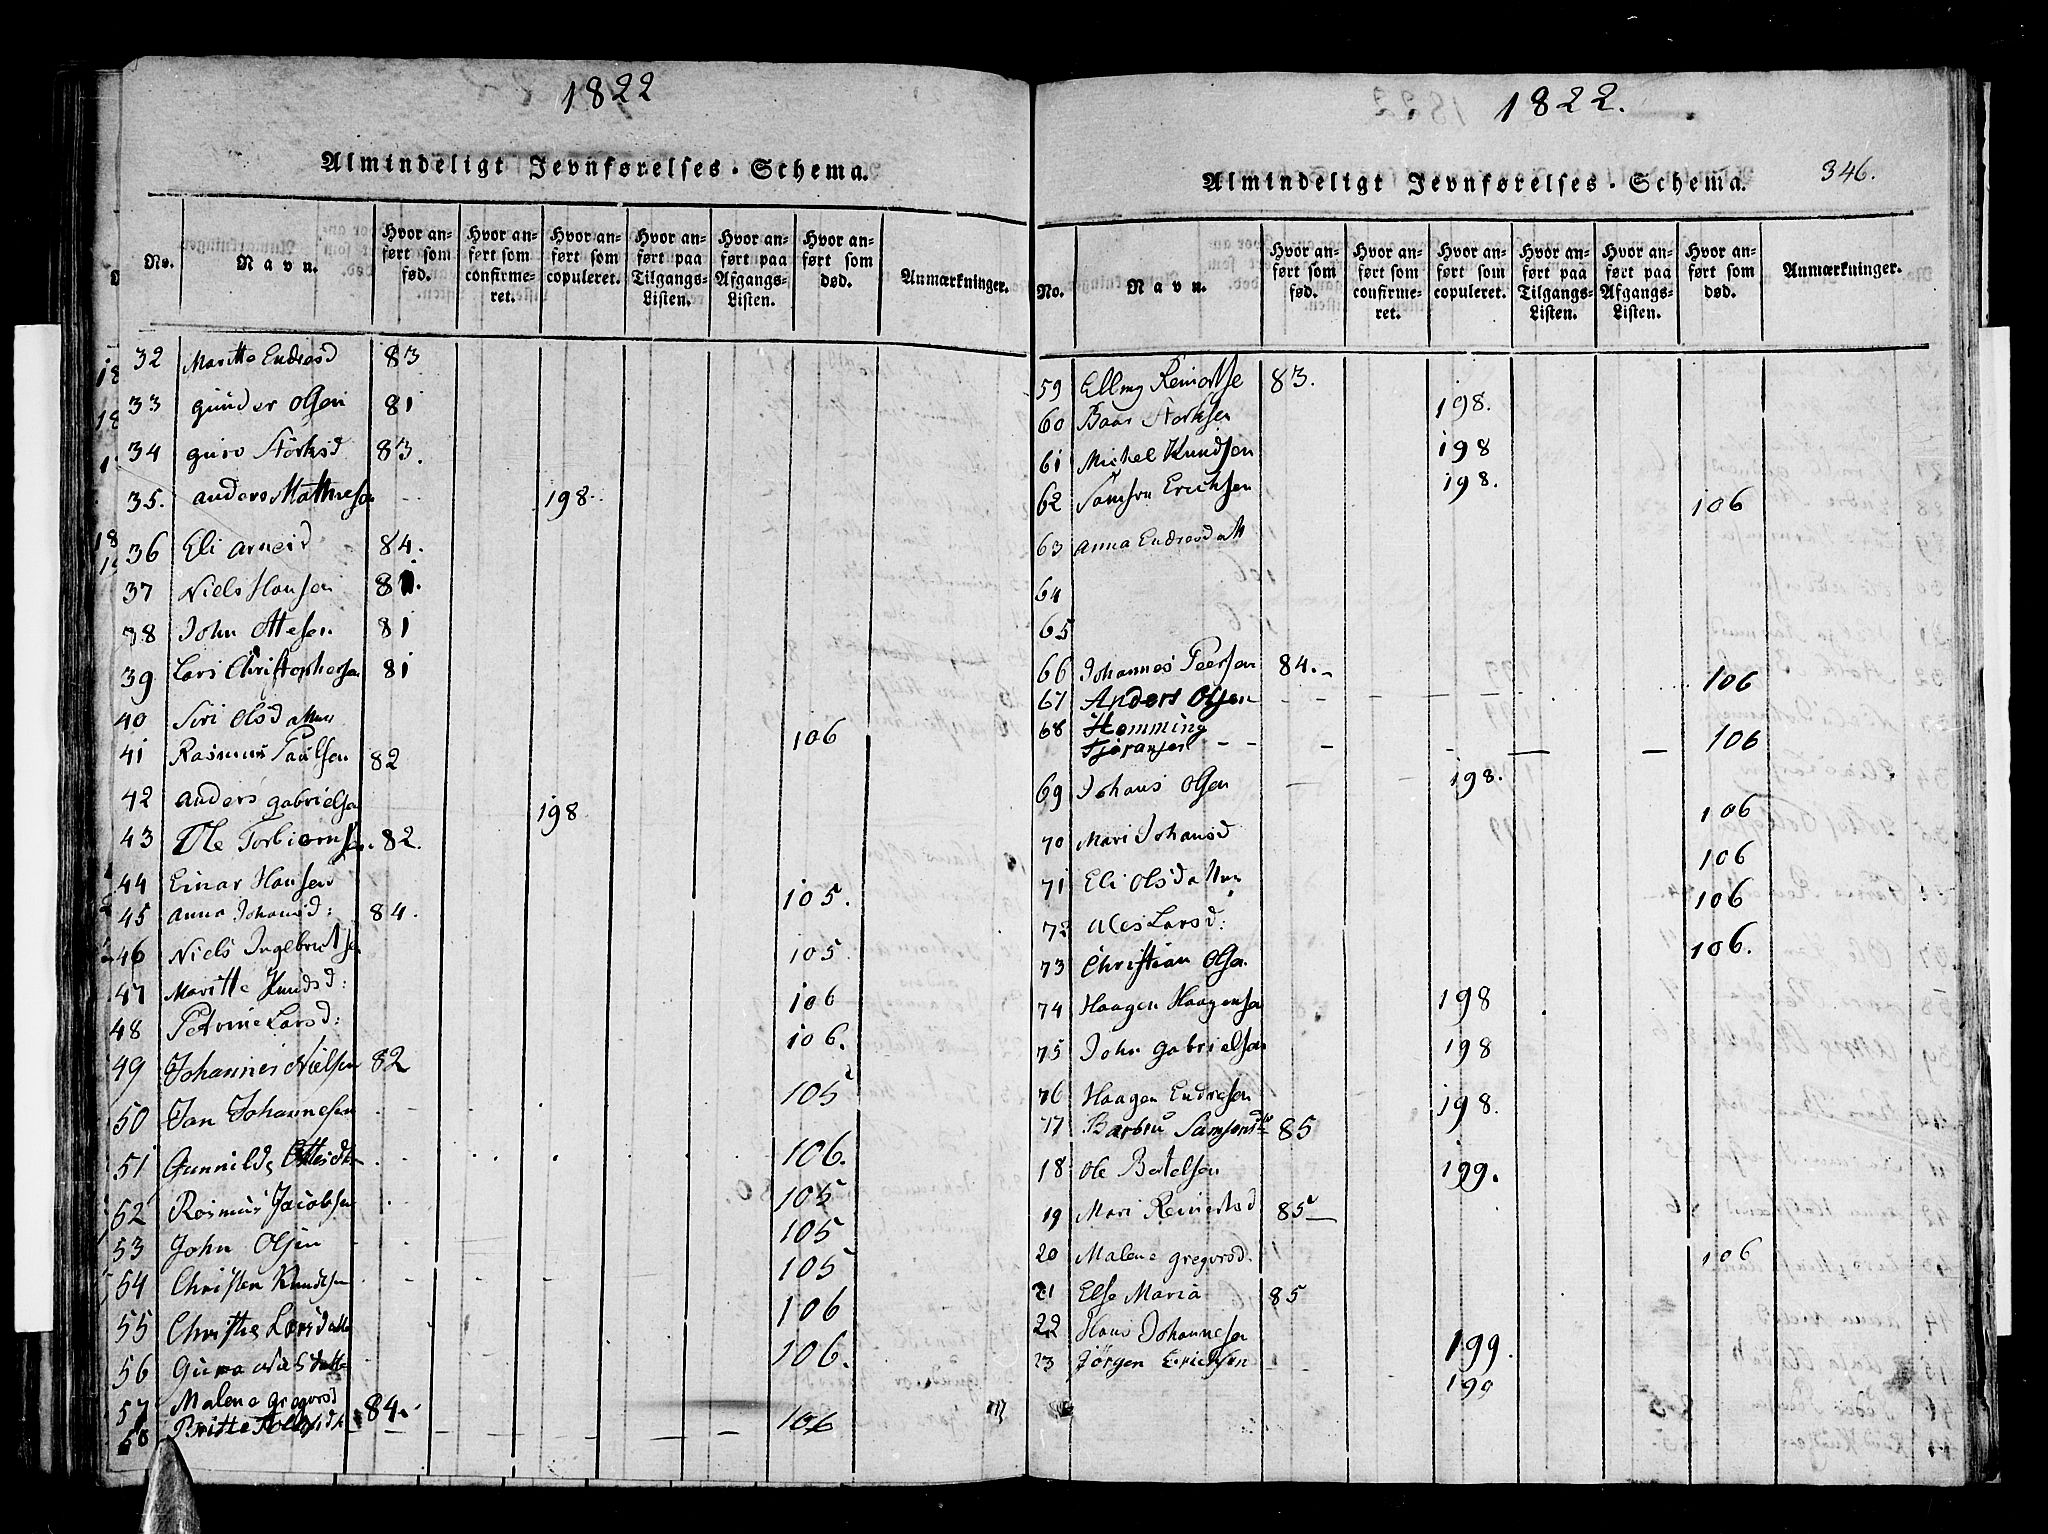 1822
Almindeligt Jevnførelses-Schema.
No. Navn. Hvor anført som fød. Hvor anført som confirmeret. Hvor anført som copuleret. Hvor anført paa Tilgangs-Listen. Hvor anført paa Afgangs-Listen. Hvor anført som død. Anmærkninger.
32 Maritte Endresd 83
33 gunder Olsen 81
34 guro Størksd 83.
35. anders Mathiesen 198.
36 Eli arnesd 84.
37 Niels Hansen 81.
38 John Ottesen 81
39 Lars Christophersen 81
40 Siri Olsdatter 106
41 Rasmus Paulsen 82
42 anders gabrielsen 198
43 Ole Torbiørnsen. 82.
44 Einar Hansen 105.
45 anna Johansd: 84.
46 Niels Ingebretsen 105.
47 Maritte Knudsd: 106
48 Petrine Larsd: 106.
49 Johannes Nielsen 82
50 Jan Johannesen 105
51 Gunnild Ottesdtr 106.
52 Rasmus Jacobsen 105
53 John Olsen 105
54 Christen Knudsen 105
55 Christie Larsdatter 106
56 Guro Nielsdatter 106.
57 Malene gregorsd 84.
58 Britte 106
1822.
346.
Almindeligt Jevnførelses-Schema.
No. Navn. Hvor anført som fød. Hvor anført som confirmeret. Hvor anført som copuleret. Hvor anført paa Tilgangs-Listen. Hvor anført paa Afgangs-Listen. Hvor anført som død. Anmærkninger.
59 Elling Reinertse 83.
60 Baar Størksen 198.
61 Michel Knudsen 198
62 Samson Ericksen 198.
63 anna Endresdatt 106
64
65
66 Johannes Peersen 84.
67 Anders Olsen 106
68 Hemming
Tjøransen 106
69 Johans Olsen 198.
70 Mari Johansd 106
71 Eli Olsdatter 106
72 Larsd: 106
73 Christian Olsen 106.
74 Haagen Haagensen 198
75 John gabrielsen 198
76 Haagen Endresen 198.
17 Barbru Samsonsdtr 85
18 Ole Bertelsen 199.
19 Mari Reinertsd 85
20 Malene gregorsd. 106
21 Else Maria 85
22 Hans Johannesen 199.
23 Jørgen Ericksen 199